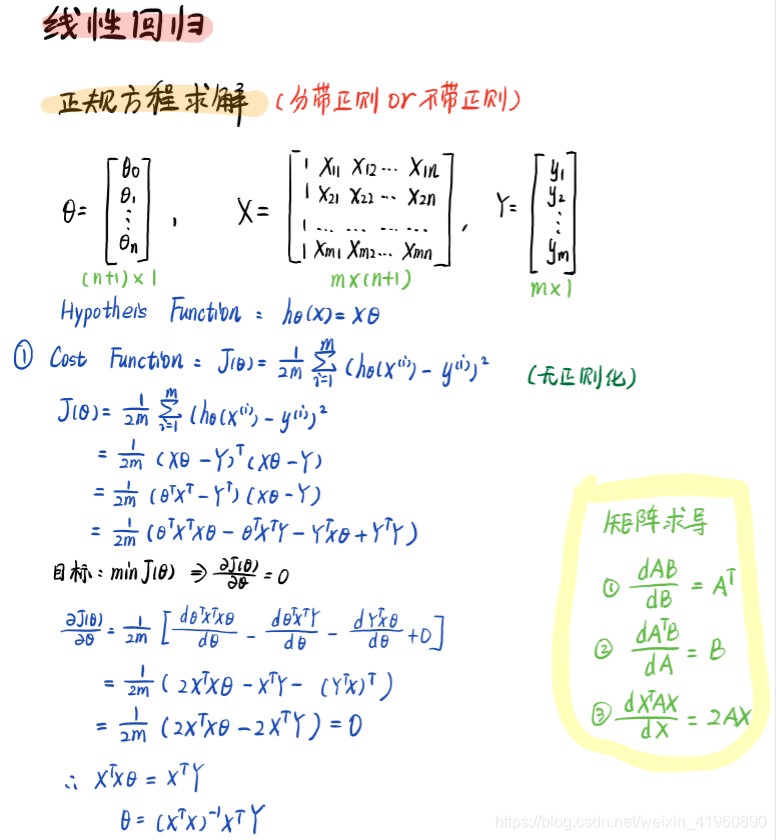 线性回归
正规方程求解 (分带正则 or 不带正则)
θ = [θ0 θ1 ⋮ θn], X = [1 X11 X12 ... X1n; 1 X21 X22 ... X2n; 1 ... ... ... ...; 1 Xm1 Xm2 ... Xmn], Y = [y1 y2 ⋮ ym]
(n+1)×1 m×(n+1) m×1
Hypotheis Function: hθ(x) = Xθ
① Cost Function: J(θ) = 1/2m Σ_{i=1}^{m} (hθ(x^(i)) - y^(i))² (无正则化)
J(θ) = 1/2m Σ_{i=1}^{m} (hθ(x^(i)) - y^(i))²
= 1/2m (Xθ - Y)^T (Xθ - Y)
= 1/2m (θ^T X^T - Y^T) (Xθ - Y)
= 1/2m (θ^T X^T Xθ - θ^T X^T Y - Y^T Xθ + Y^T Y)
目标: min J(θ) ⇒ ∂J(θ)/∂θ = 0
∂J(θ)/∂θ = 1/2m [dθ^T X^T Xθ/dθ - dθ^T X^T Y/dθ - dY^T Xθ/dθ + 0]
= 1/2m (2X^T Xθ - X^T Y - (Y^T X)^T)
= 1/2m (2X^T Xθ - 2X^T Y) = 0
∴ X^T Xθ = X^T Y
θ = (X^T X)^-1 X^T Y
矩阵求导
① dAB/dB = A^T
② dA^T B/dA = B
③ dX^T AX/dX = 2AX
https://blog.csdn.net/weixin_41960890